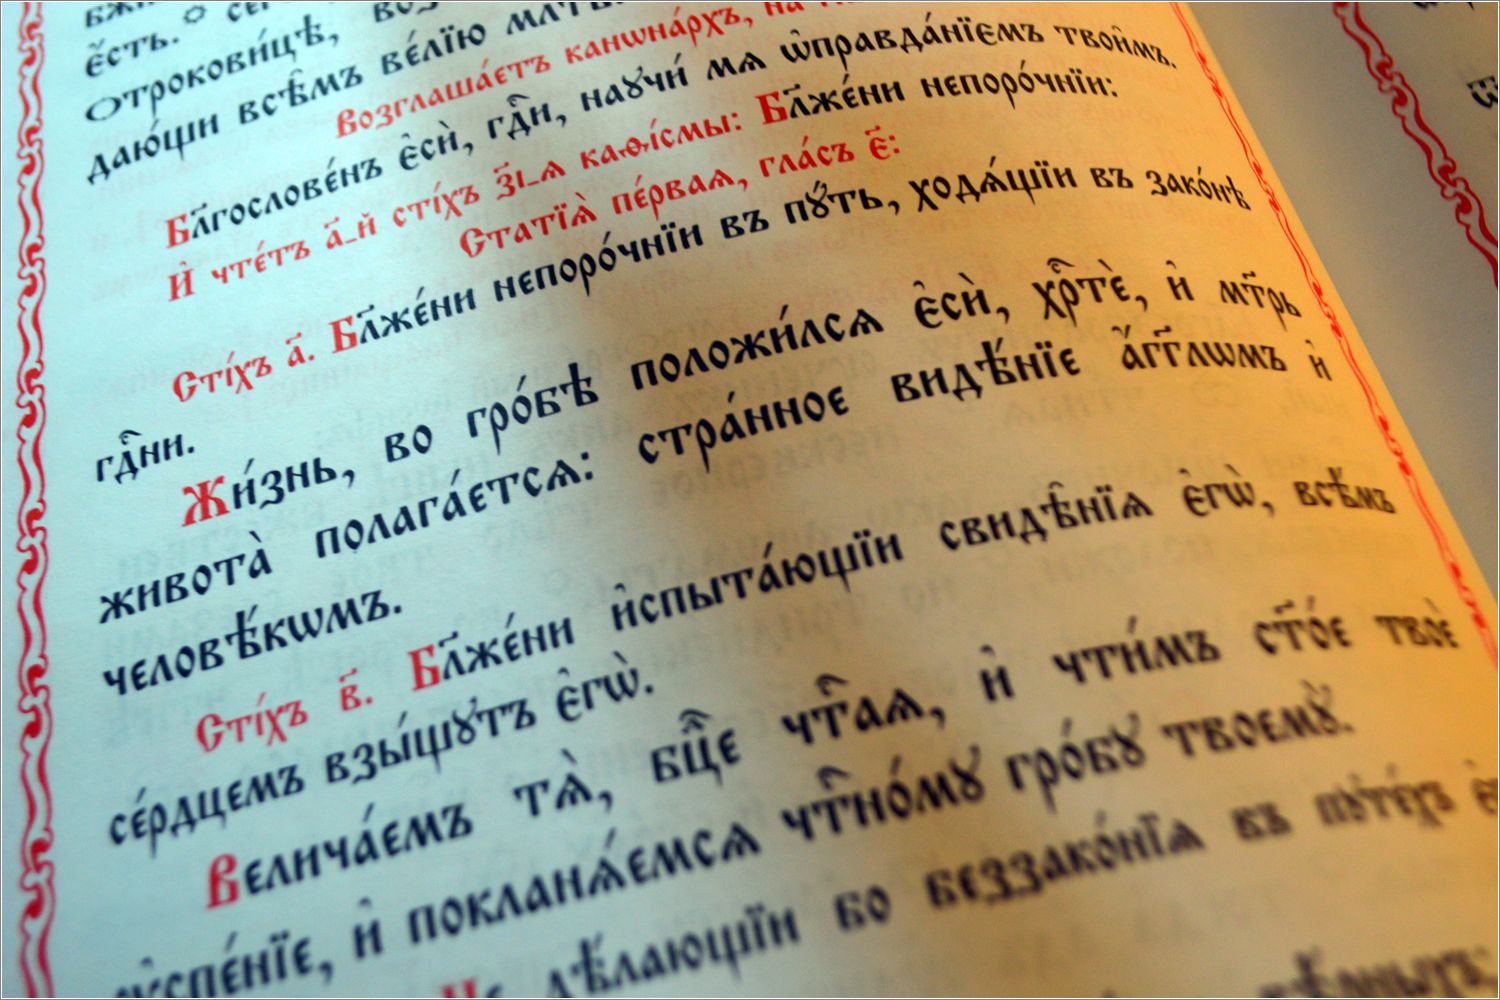 є҆́сть.
Ѻтрокови́цѣ,
даю́щи всѣ̑мъ ве́лїю
Возглаша́етъ канѡна́рхъ, на
Бл҃гослове́нъ є҆сѝ, гдⷭ҇и, научи́ мѧ ѡ҆правда́нїємъ твои̑мъ.
И҆ чте́тъ а҃-й сті́хъ з҃і-ѧ каѳі́смы: Бл҃же́ни непоро́чнїи:
Статїѧ̀ пе́рваѧ, гла́съ є҃:
Сті́хъ а҃. Бл҃же́ни непоро́чнїи въ пꙋ́ть, ходѧ́щїи въ зако́нѣ
гдⷭ҇ни.
Жи́знь, во гро́бѣ положи́лсѧ є҆сѝ, хрⷭ҇тѐ, и҆ мт҃рь
живота̀ полага́етсѧ: стра́нное видѣ́нїе а҆́гг҃лѡмъ и҆
человѣ́кѡмъ.
Сті́хъ в҃. Бл҃же́ни и҆спыта́ющїи свидѣ̑нїѧ є҆гѡ̀, всѣ́мъ
се́рдцемъ взы́щꙋтъ є҆гѡ̀.
Велича́емъ тѧ̀, бцⷣе чтⷭ҇аѧ, и҆ чти́мъ ст҃о́е твоѐ
ᲂу҆спе́нїе, и҆ покланѧ́емсѧ чтⷭ҇но́мꙋ гро́бꙋ твоемꙋ̀.
Не дѣ́лающїи бо беззако́нїѧ въ пꙋте́хъ